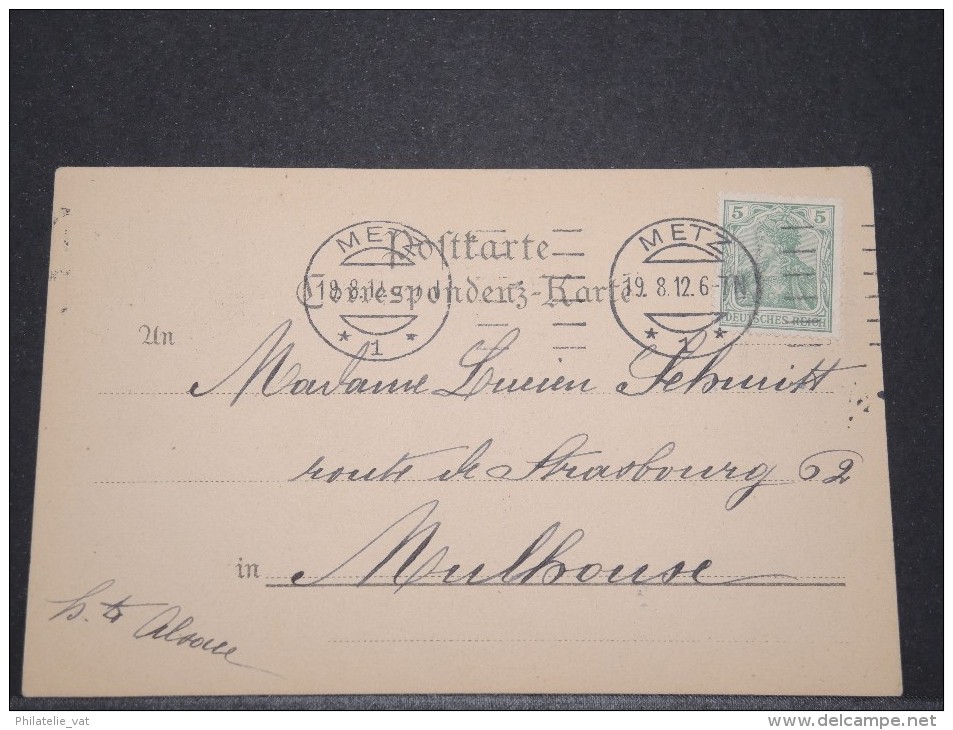 Postkarte
Correspondenz-Karte
METZ
METZ
19.8.12.6-7N
* 1 *
* 1 *
5 5
DEUTSCHES REICH
An
Madame Lucien Schmitt
route de Strasbourg 62
in Mulhouse
hte Alsace
Philatelie_vat
http://www.delcampe.net